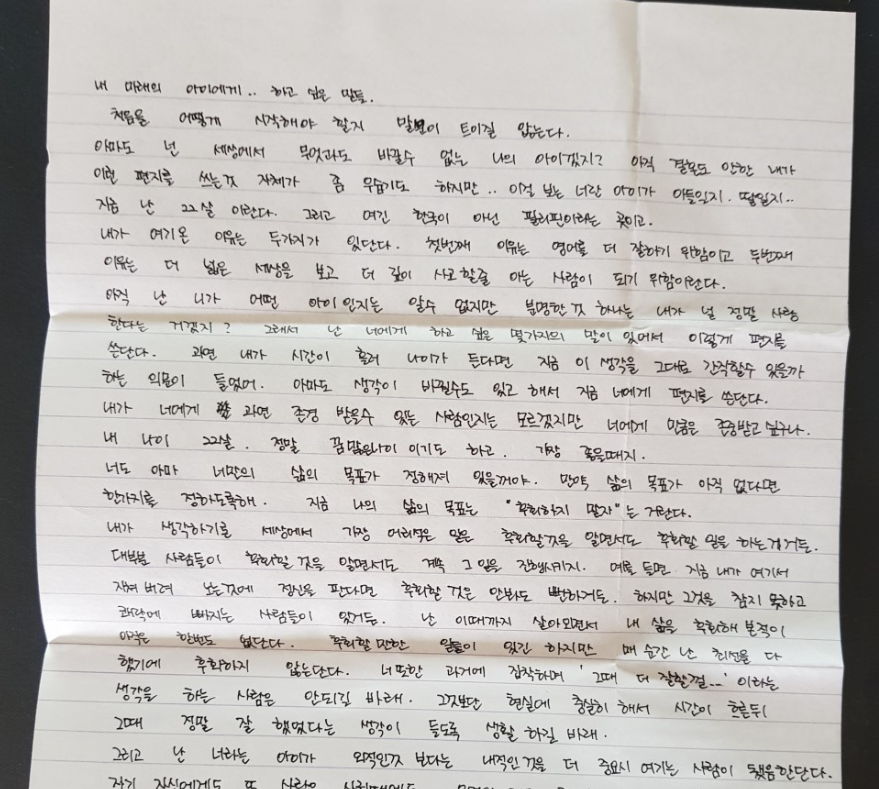 내 미래의 아이에게.. 하고 싶은 말들.
처음을 어떻게 시작해야 할지 말문이 트이질 않는다.
아마도 넌 세상에서 무엇과도 바꿀수 없는 나의 아이겠지? 아직 결혼도 안한 내가
이런 편지를 쓰는것 자체가 좀 우습기도 하지만.. 이걸 보는 너란 아이가 아들일지. 딸일지..
지금 난 22살 이란다. 그리고 여긴 한국이 아닌 필리핀이라는 곳이고.
내가 여기온 이유는 두가지가 있단다. 첫번째 이유는 영어를 더 잘하기 위함이고 두번째
이유는 더 넓은 세상을 보고 더 깊이 사고할줄 아는 사람이 되기 위함이란다.
아직 난 니가 어떤 아이인지는 알수 없지만 분명한것 하나는 내가 널 정말 사랑
한다는 거겠지? 그래서 난 너에게 하고 싶은 몇가지의 말이 있어서 이렇게 편지를
쓴단다. 과연 내가 시간이 흘러 나이가 든다면 지금 이 생각을 그대로 간직할수 있을까
하는 의문이 들었어. 아마도 생각이 바뀔수도 있고 해서 지금 너에게 편지를 쓴단다.
내가 너에게 과연 존경 받을수 있는 사람인지는 모르겠지만 너에게 만큼은 존중받고 싶구나.
내 나이 22살. 정말 꿈많은나이 이기도 하고. 가장 좋을때지.
너도 아마 너만의 삶의 목표가 정해져 있을꺼야. 만약 삶의 목표가 아직 없다면
한가지를 정하도록해. 지금 나의 삶의 목표는 "후회하지 말자"는 거란다.
내가 생각하기를 세상에서 가장 어리석은 일은 후회할것을 알면서도 후회할 일을 하는거거든.
대부분 사람들이 후회할 것을 알면서도 계속 그 일을 진행시키지. 예를 들면 지금 내가 여기서
자여 버려 노는것에 정신을 판다면 후회할 것은 안봐도 뻔하거든. 하지만 그것을 참지 못하고
쾌락에 빠지는 사람들이 있거든. 난 이때까지 살아오면서 내 삶을 후회해 본적이
아직은 한번도 없단다. 후회할만한 일들이 있긴 하지만 매 순간 난 최선을 다
했기에 후회하지 않는단다. 너또한 과거에 집착하며 '그때 더 잘할껄..' 이라는
생각을 하는 사람은 안되길 바래. 그것보단 현실에 충실히 해서 시간이 흐른뒤
그때 정말 잘 했었다는 생각이 들도록 생활 하길 바래.
그리고 난 너라는 아이가 외적인것 보다는 내적인것을 더 중요시 여기는 사람이 됐음한단다.
자기 자신에게도 또 사람을